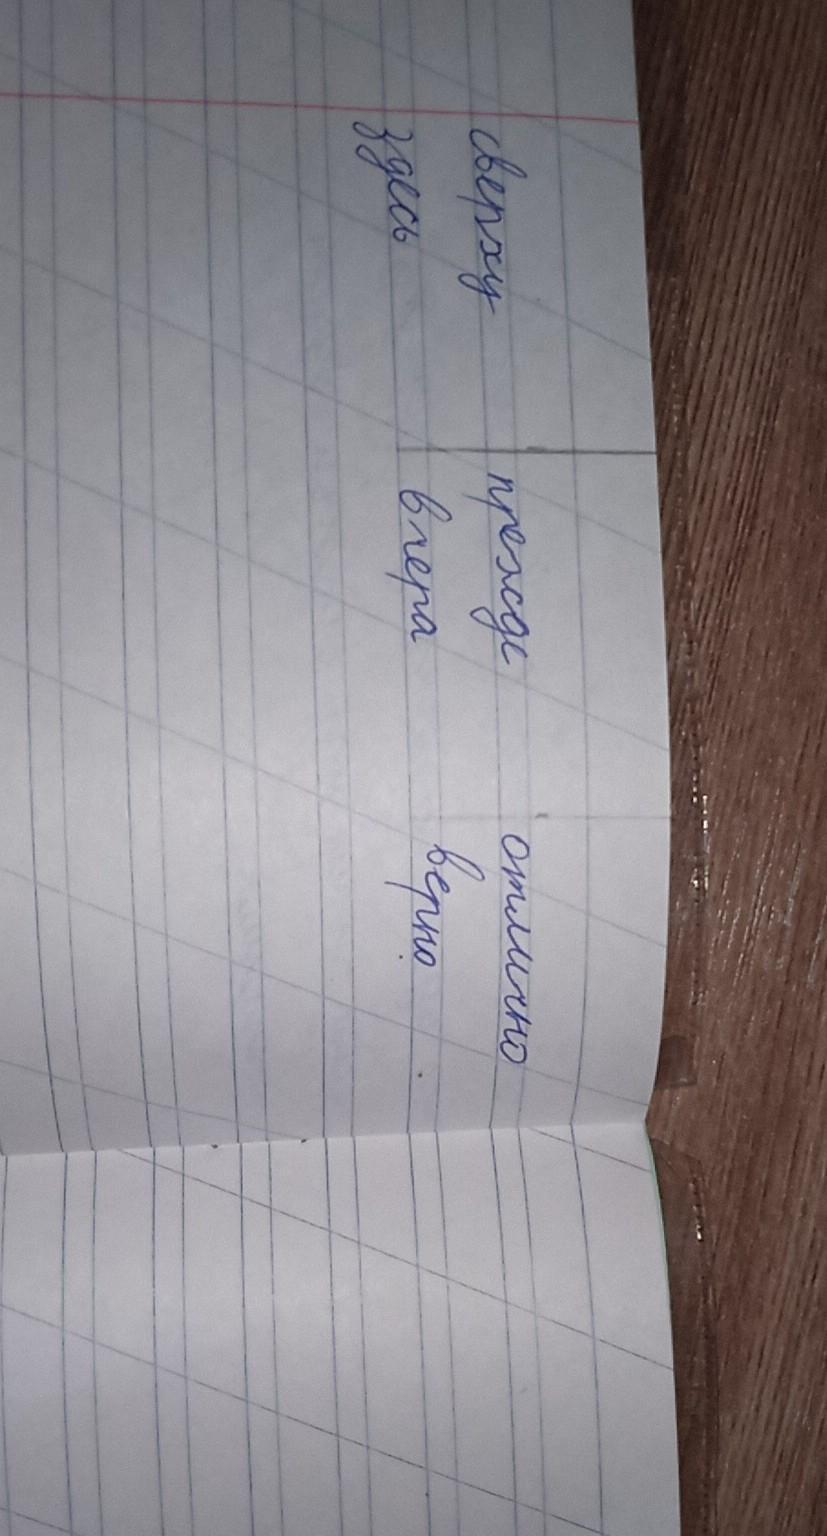 сверху прежде отлично
здесь вчера верно